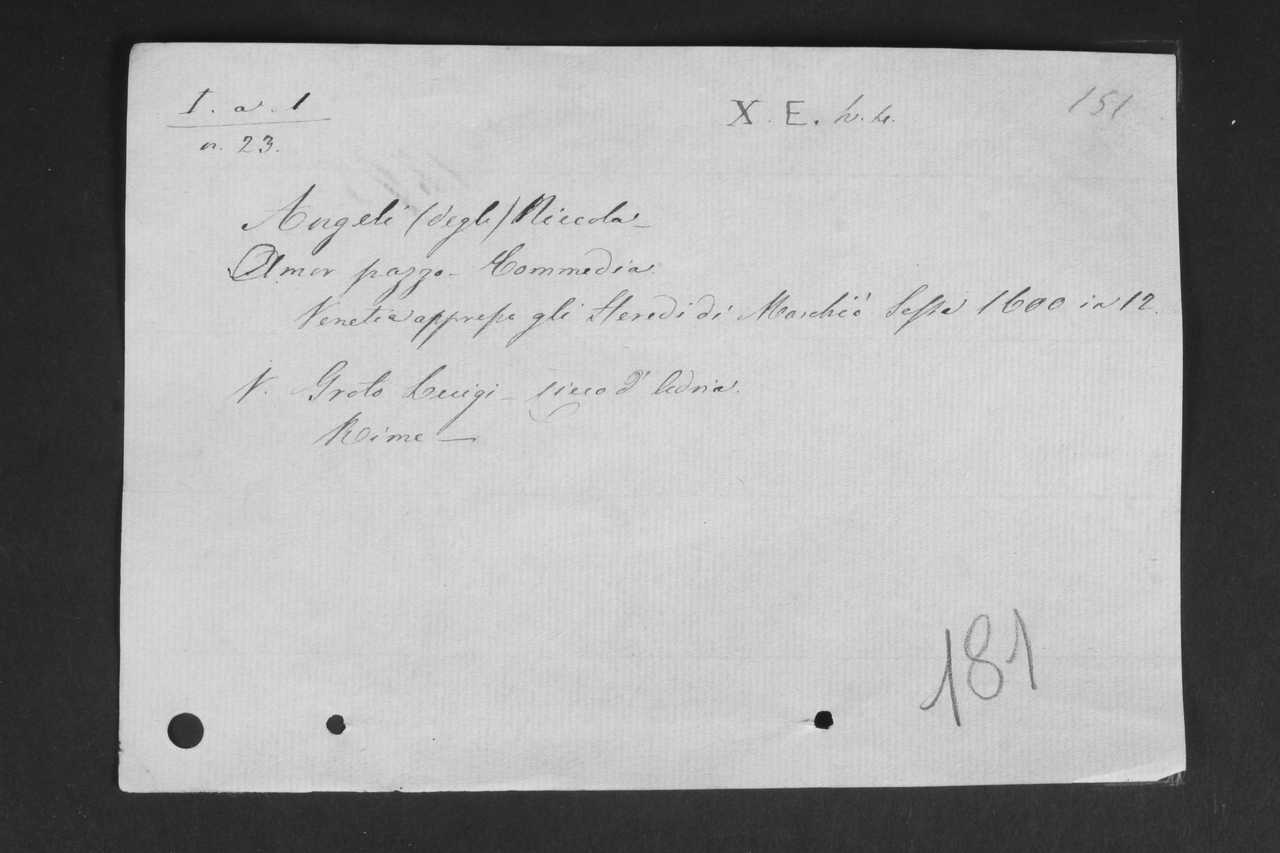 I. a. 1
n. 23.
X. E. h. h.
151
Angeli (degli) Niccola -
Amor pazzo - Commedia.
Venetia appresso gli Heredi di Marchiò Sessa 1600 in 12.
V. Groto Luigi - cieco d'Adria.
Rime -
181